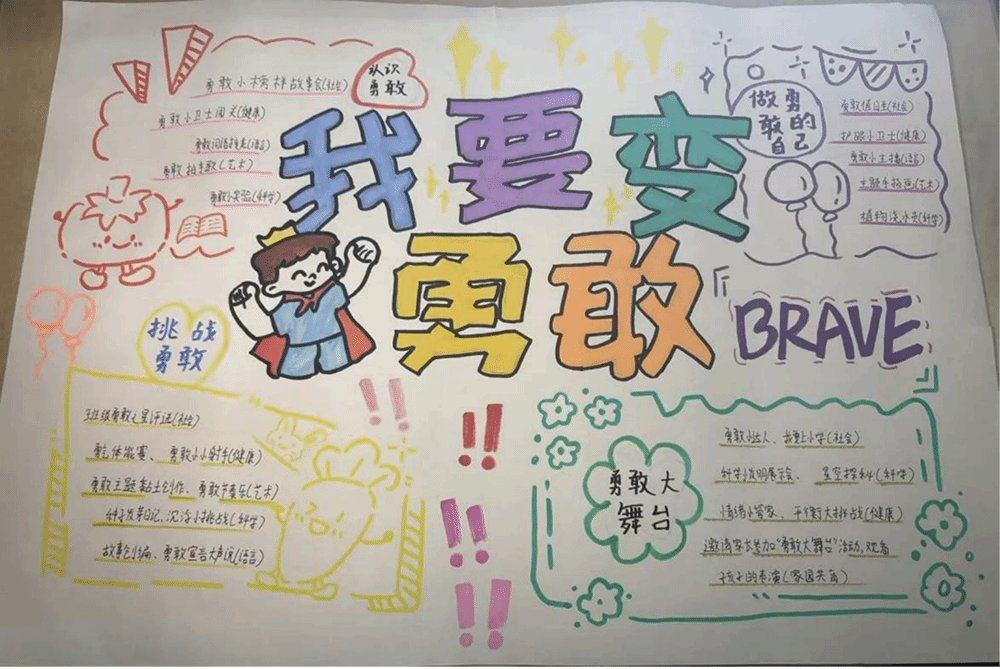 认识
勇敢
勇敢小榜样故事会(社会)
勇敢小卫士闯关(健康)
勇敢词语接龙(语言)
勇敢拍手歌(艺术)
勇敢小实验(科学)
我要变
勇敢
BRAVE
做勇
敢的
自己
勇敢值日生(社会)
护眼小卫士(健康)
勇敢小主播(语言)
主题手指画(艺术)
植物浇水员(科学)
挑战
勇敢
班级勇敢之星评选(社会)
体能赛、勇敢小小射手(健康)
勇敢主题黏土创作、勇敢节奏乐(艺术)
种子发芽日记、沉浮小挑战(科学)
故事创编、勇敢宣言大声说(语言)
勇敢大
舞台
勇敢小达人、我要上小学(社会)
科学小发明展示会、星空探秘(科学)
情绪小管家、平衡大挑战(健康)
邀请家长参加“勇敢大舞台”活动,观看
孩子的表演(家园共育)